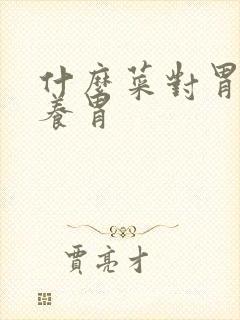 什麼菜對胃
養胃
賈亮才